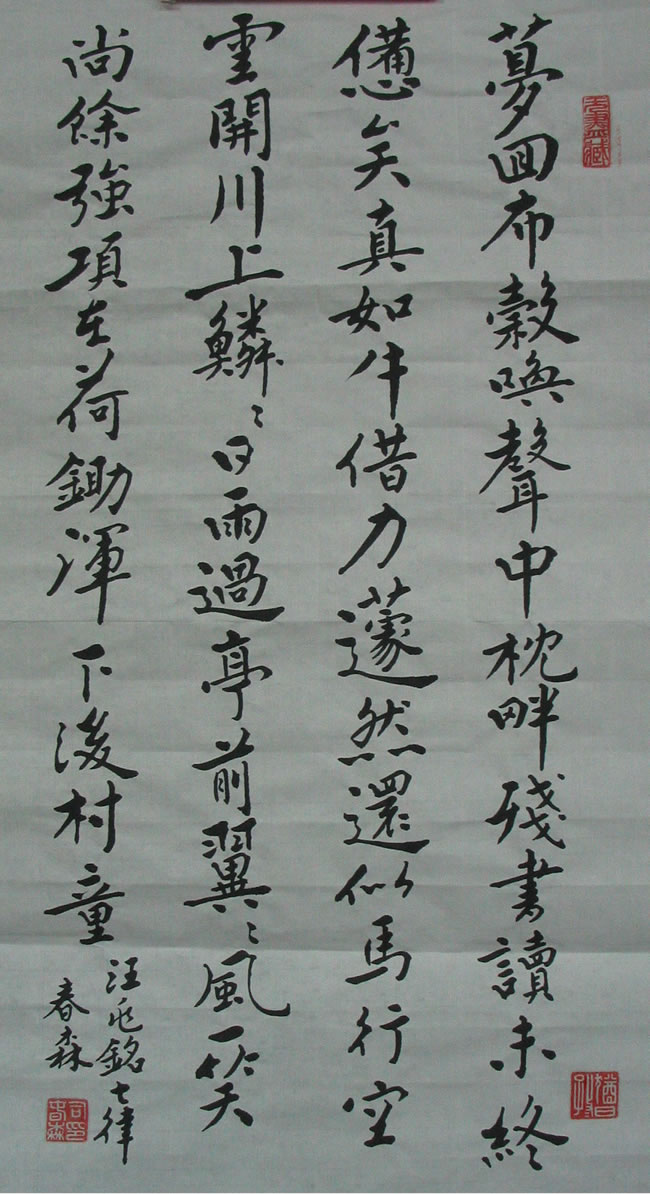 夢囬布穀喚聲中枕畔殘書讀未終
憊矣真如牛借力蘧然還似馬行空
雲開川上鱗〻日雨過亭前翼〻風一笑
尚餘強項在荷鋤渾不後村童
汪兆銘七律
春森